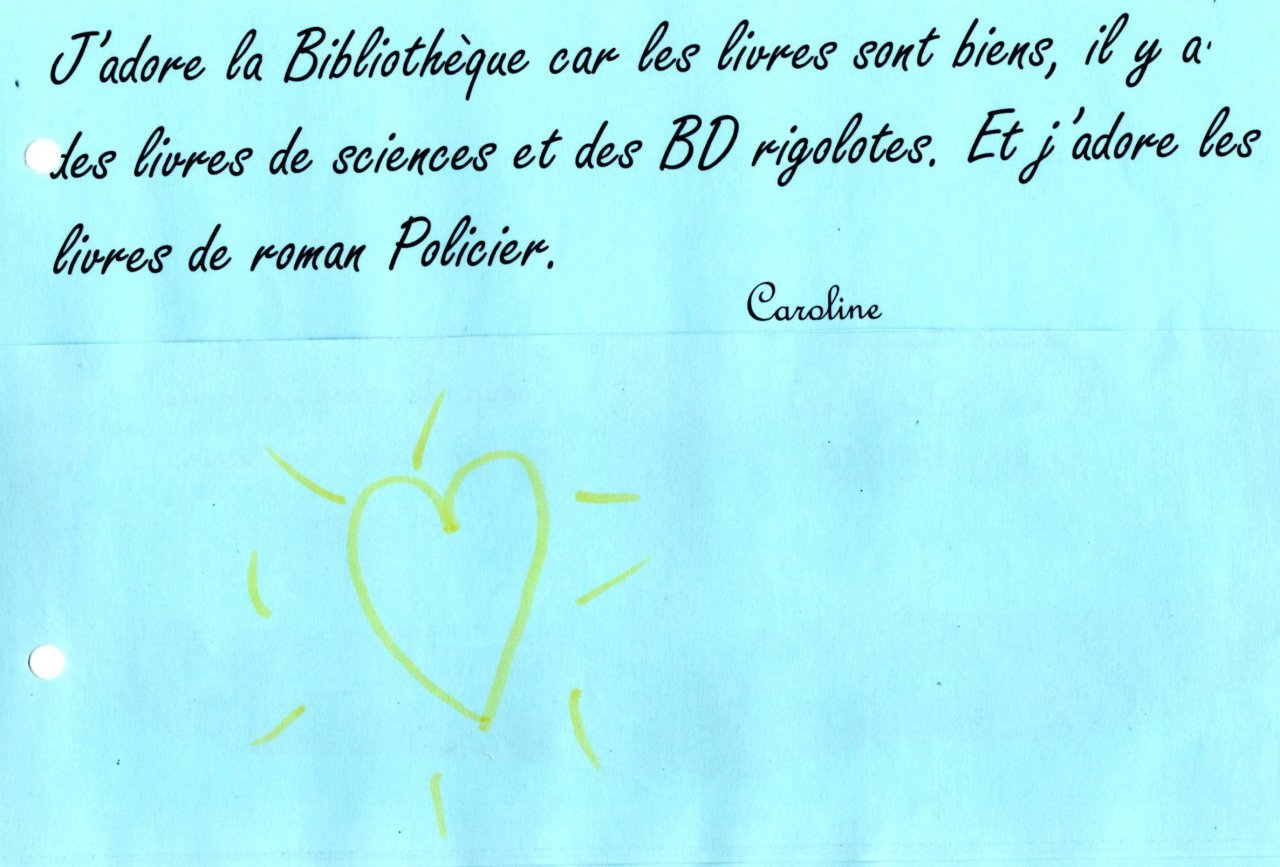 J'adore la Bibliothèque car les livres sont biens, il y a
des livres de sciences et des BD rigolotes. Et j'adore les
livres de roman Policier.
Caroline